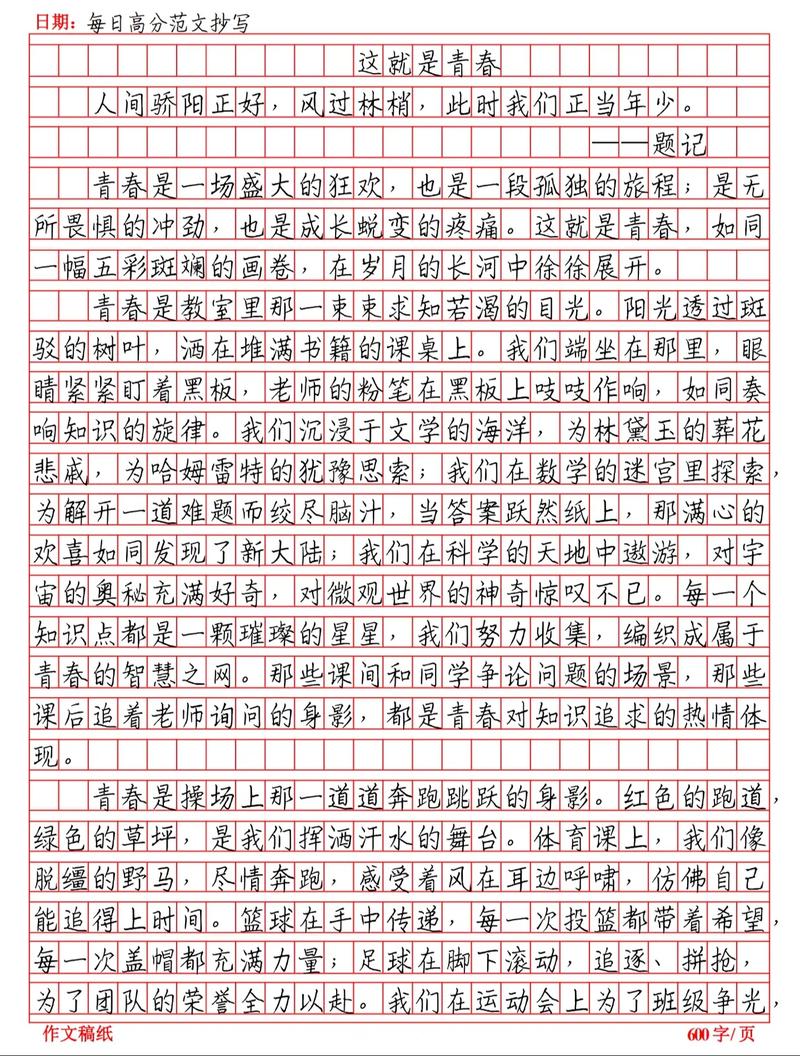 日期：每日高分范文抄写
这就是青春
人间骄阳正好，风过林梢，此时我们正当年少。
——题记
青春是一场盛大的狂欢，也是一段孤独的旅程；是无
所畏惧的冲劲，也是成长蜕变的疼痛。这就是青春，如同
一幅五彩斑斓的画卷，在岁月的长河中徐徐展开。
青春是教室里那一束束求知若渴的目光。阳光透过斑
驳的树叶，洒在堆满书籍的课桌上。我们端坐在那里，眼
睛紧紧盯着黑板，老师的粉笔在黑板上吱吱作响，如同奏
响知识的旋律。我们沉浸于文学的海洋，为林黛玉的葬花
悲戚，为哈姆雷特的犹豫思索；我们在数学的迷宫里探索，
为解开一道难题而绞尽脑汁，当答案跃然纸上，那满心的
欢喜如同发现了新大陆；我们在科学的天地中遨游，对宇
宙的奥秘充满好奇，对微观世界的神奇惊叹不已。每一个
知识点都是一颗璀璨的星星，我们努力收集，编织成属于
青春的智慧之网。那些课间和同学争论问题的场景，那些
课后追着老师询问的身影，都是青春对知识追求的热情体
现。
青春是操场上那一道道奔跑跳跃的身影。红色的跑道，
绿色的草坪，是我们挥洒汗水的舞台。体育课上，我们像
脱缰的野马，尽情奔跑，感受着风在耳边呼啸，仿佛自己
能追得上时间。篮球在手中传递，每一次投篮都带着希望，
每一次盖帽都充满力量；足球在脚下滚动，追逐、拼抢，
为了团队的荣誉全力以赴。我们在运动会上为了班级争光，
作文稿纸
600字/页